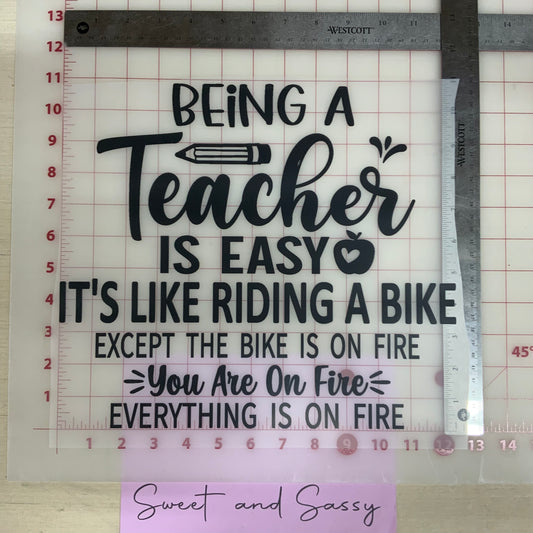 BEiNG A
Teacher
IS EASY
IT'S LIKE RIDING A BIKE
EXCEPT THE BIKE IS ON FIRE
You Are On Fire
EVERYTHING IS ON FIRE
Sweet and Sassy
WESTCOTT
WESTCOTT
13
12
11
10
9
8
7
6
5
4
3
2
1
1 2 3 4 5 6 7 8 9 10 11 12 13 14
45°